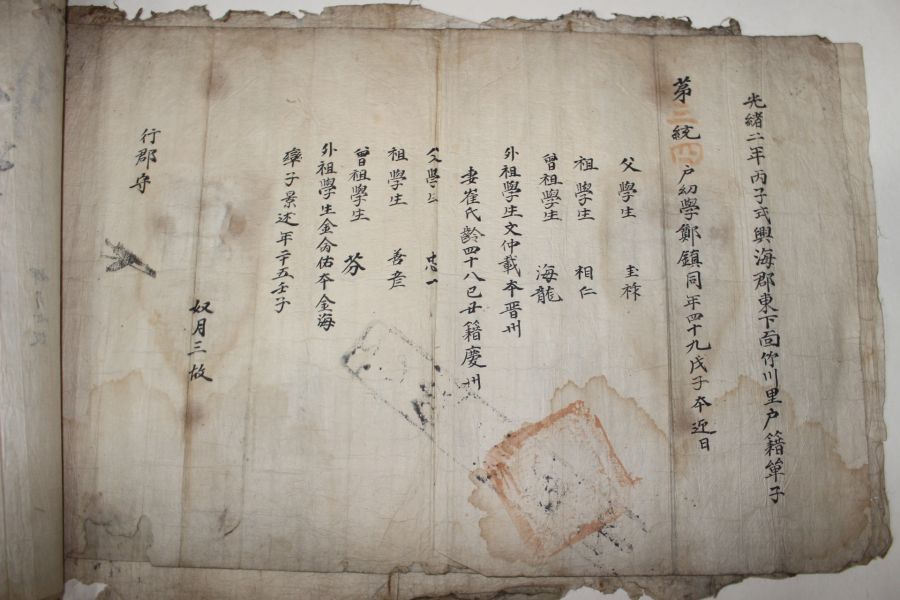 光緒二年丙子式興海郡東下面你川里户籍單子
第三統四户幼學鄭鎮同年四十九戊子本延日
父學生 圭祿
祖學生 相仁
曾祖學生 海龍
外祖學生文仲載本晋州
妻崔氏齡四十八己丑籍慶州
父學生 忠一
祖學生 善彦
曾祖學生 芬
外祖學生金侖佑本金海
率子景述年二十五壬子
奴月三故
行郡守